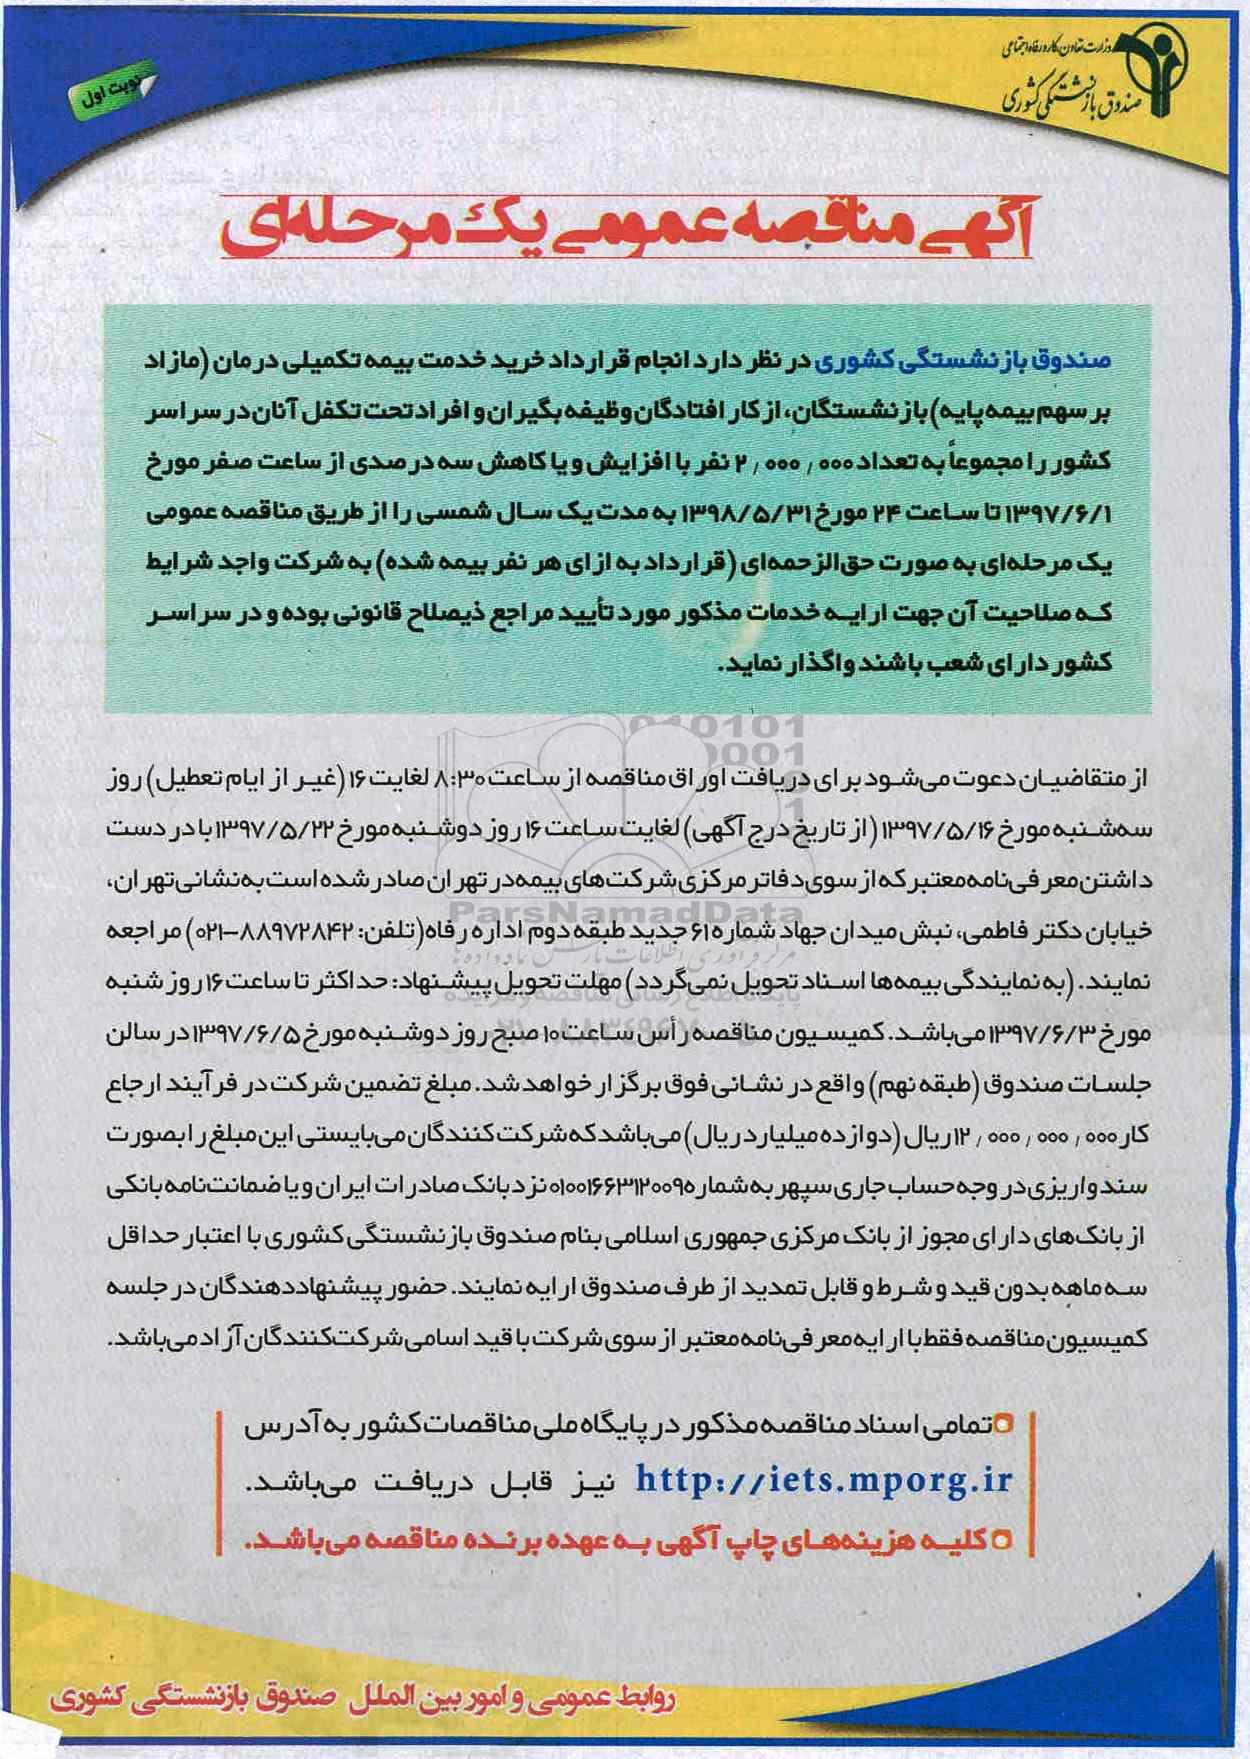 وزارت تعاون، کار و رفاه اجتماعی
صندوق بازنشستگی کشوری
نوبت اول
آگهی مناقصه عمومی یک مرحله‌ای
صندوق بازنشستگی کشوری در نظر دارد انجام قرارداد خرید خدمت بیمه تکمیلی درمان (مازاد
بر سهم بیمه پایه) بازنشستگان، از کار افتادگان وظیفه بگیران و افراد تحت تکفل آنان در سراسر
کشور را مجموعاً به تعداد ۲٫۰۰۰٫۰۰۰ نفر با افزایش و یا کاهش سه درصدی از ساعت صفر مورخ
۱۳۹۷/۶/۱ تا ساعت ۲۴ مورخ ۱۳۹۸/۵/۳۱ به مدت یک سال شمسی را از طریق مناقصه عمومی
یک مرحله‌ای به صورت حق‌الزحمه‌ای (قرارداد به ازای هر نفر بیمه شده) به شرکت واجد شرایط
که صلاحیت آن جهت ارایه خدمات مذکور مورد تأیید مراجع ذیصلاح قانونی بوده و در سراسر
کشور دارای شعب باشند واگذار نماید.
از متقاضیان دعوت می‌شود برای دریافت اوراق مناقصه از ساعت ۸:۳۰ لغایت ۱۶ (غیر از ایام تعطیل) روز
سه‌شنبه مورخ ۱۳۹۷/۵/۱۶ (از تاریخ درج آگهی) لغایت ساعت ۱۶ روز دوشنبه مورخ ۱۳۹۷/۵/۲۲ با در دست
داشتن معرفی‌نامه معتبر که از سوی دفاتر مرکزی شرکت‌های بیمه در تهران صادر شده است به نشانی تهران،
خیابان دکتر فاطمی، نبش میدان جهاد شماره ۶۱ جدید طبقه دوم اداره رفاه (تلفن: ۸۸۹۷۲۸۴۲-۰۲۱) مراجعه
نمایند. (به نمایندگی بیمه‌ها اسناد تحویل نمی‌گردد) مهلت تحویل پیشنهاد: حداکثر تا ساعت ۱۶ روز شنبه
مورخ ۱۳۹۷/۶/۳ می‌باشد. کمیسیون مناقصه رأس ساعت ۱۰ صبح روز دوشنبه مورخ ۱۳۹۷/۶/۵ در سالن
جلسات صندوق (طبقه نهم) واقع در نشانی فوق برگزار خواهد شد. مبلغ تضمین شرکت در فرآیند ارجاع
کار ۱۲٫۰۰۰٫۰۰۰٫۰۰۰ ریال (دوازده میلیارد ریال) می‌باشد که شرکت کنندگان می‌بایستی این مبلغ را بصورت
سند واریزی در وجه حساب جاری سپهر به شماره ۰۱۰۰۱۶۶۳۱۲۰۰۹ نزد بانک صادرات ایران و یا ضمانت‌نامه بانکی
از بانک‌های دارای مجوز از بانک مرکزی جمهوری اسلامی بنام صندوق بازنشستگی کشوری با اعتبار حداقل
سه ماهه بدون قید و شرط و قابل تمدید از طرف صندوق ارایه نمایند. حضور پیشنهاددهندگان در جلسه
کمیسیون مناقصه فقط با ارایه معرفی‌نامه معتبر از سوی شرکت با قید اسامی شرکت‌کنندگان آزاد می‌باشد.
تمامی اسناد مناقصه مذکور در پایگاه ملی مناقصات کشور به آدرس
http://iets.mporg.ir نیز قابل دریافت می‌باشد.
کلیه هزینه‌های چاپ آگهی به عهده برنده مناقصه می‌باشد.
روابط عمومی و امور بین الملل صندوق بازنشستگی کشوری
ParsNamadData